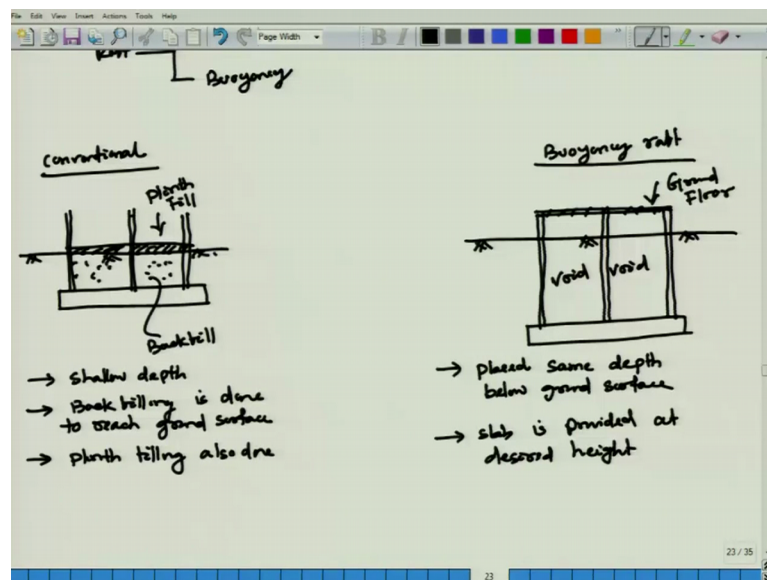 File Edit View Insert Actions Tools Help
Page Width
B I
Raft
Buoyancy
Conventional
Plinth
Fill
Backfill
→ Shallow depth
→ Backfilling is done
to reach ground surface
→ Plinth filling also done
Buoyancy raft
Ground
Floor
void void
→ placed some depth
below ground surface
→ slab is provided at
desired height
23 / 35
23